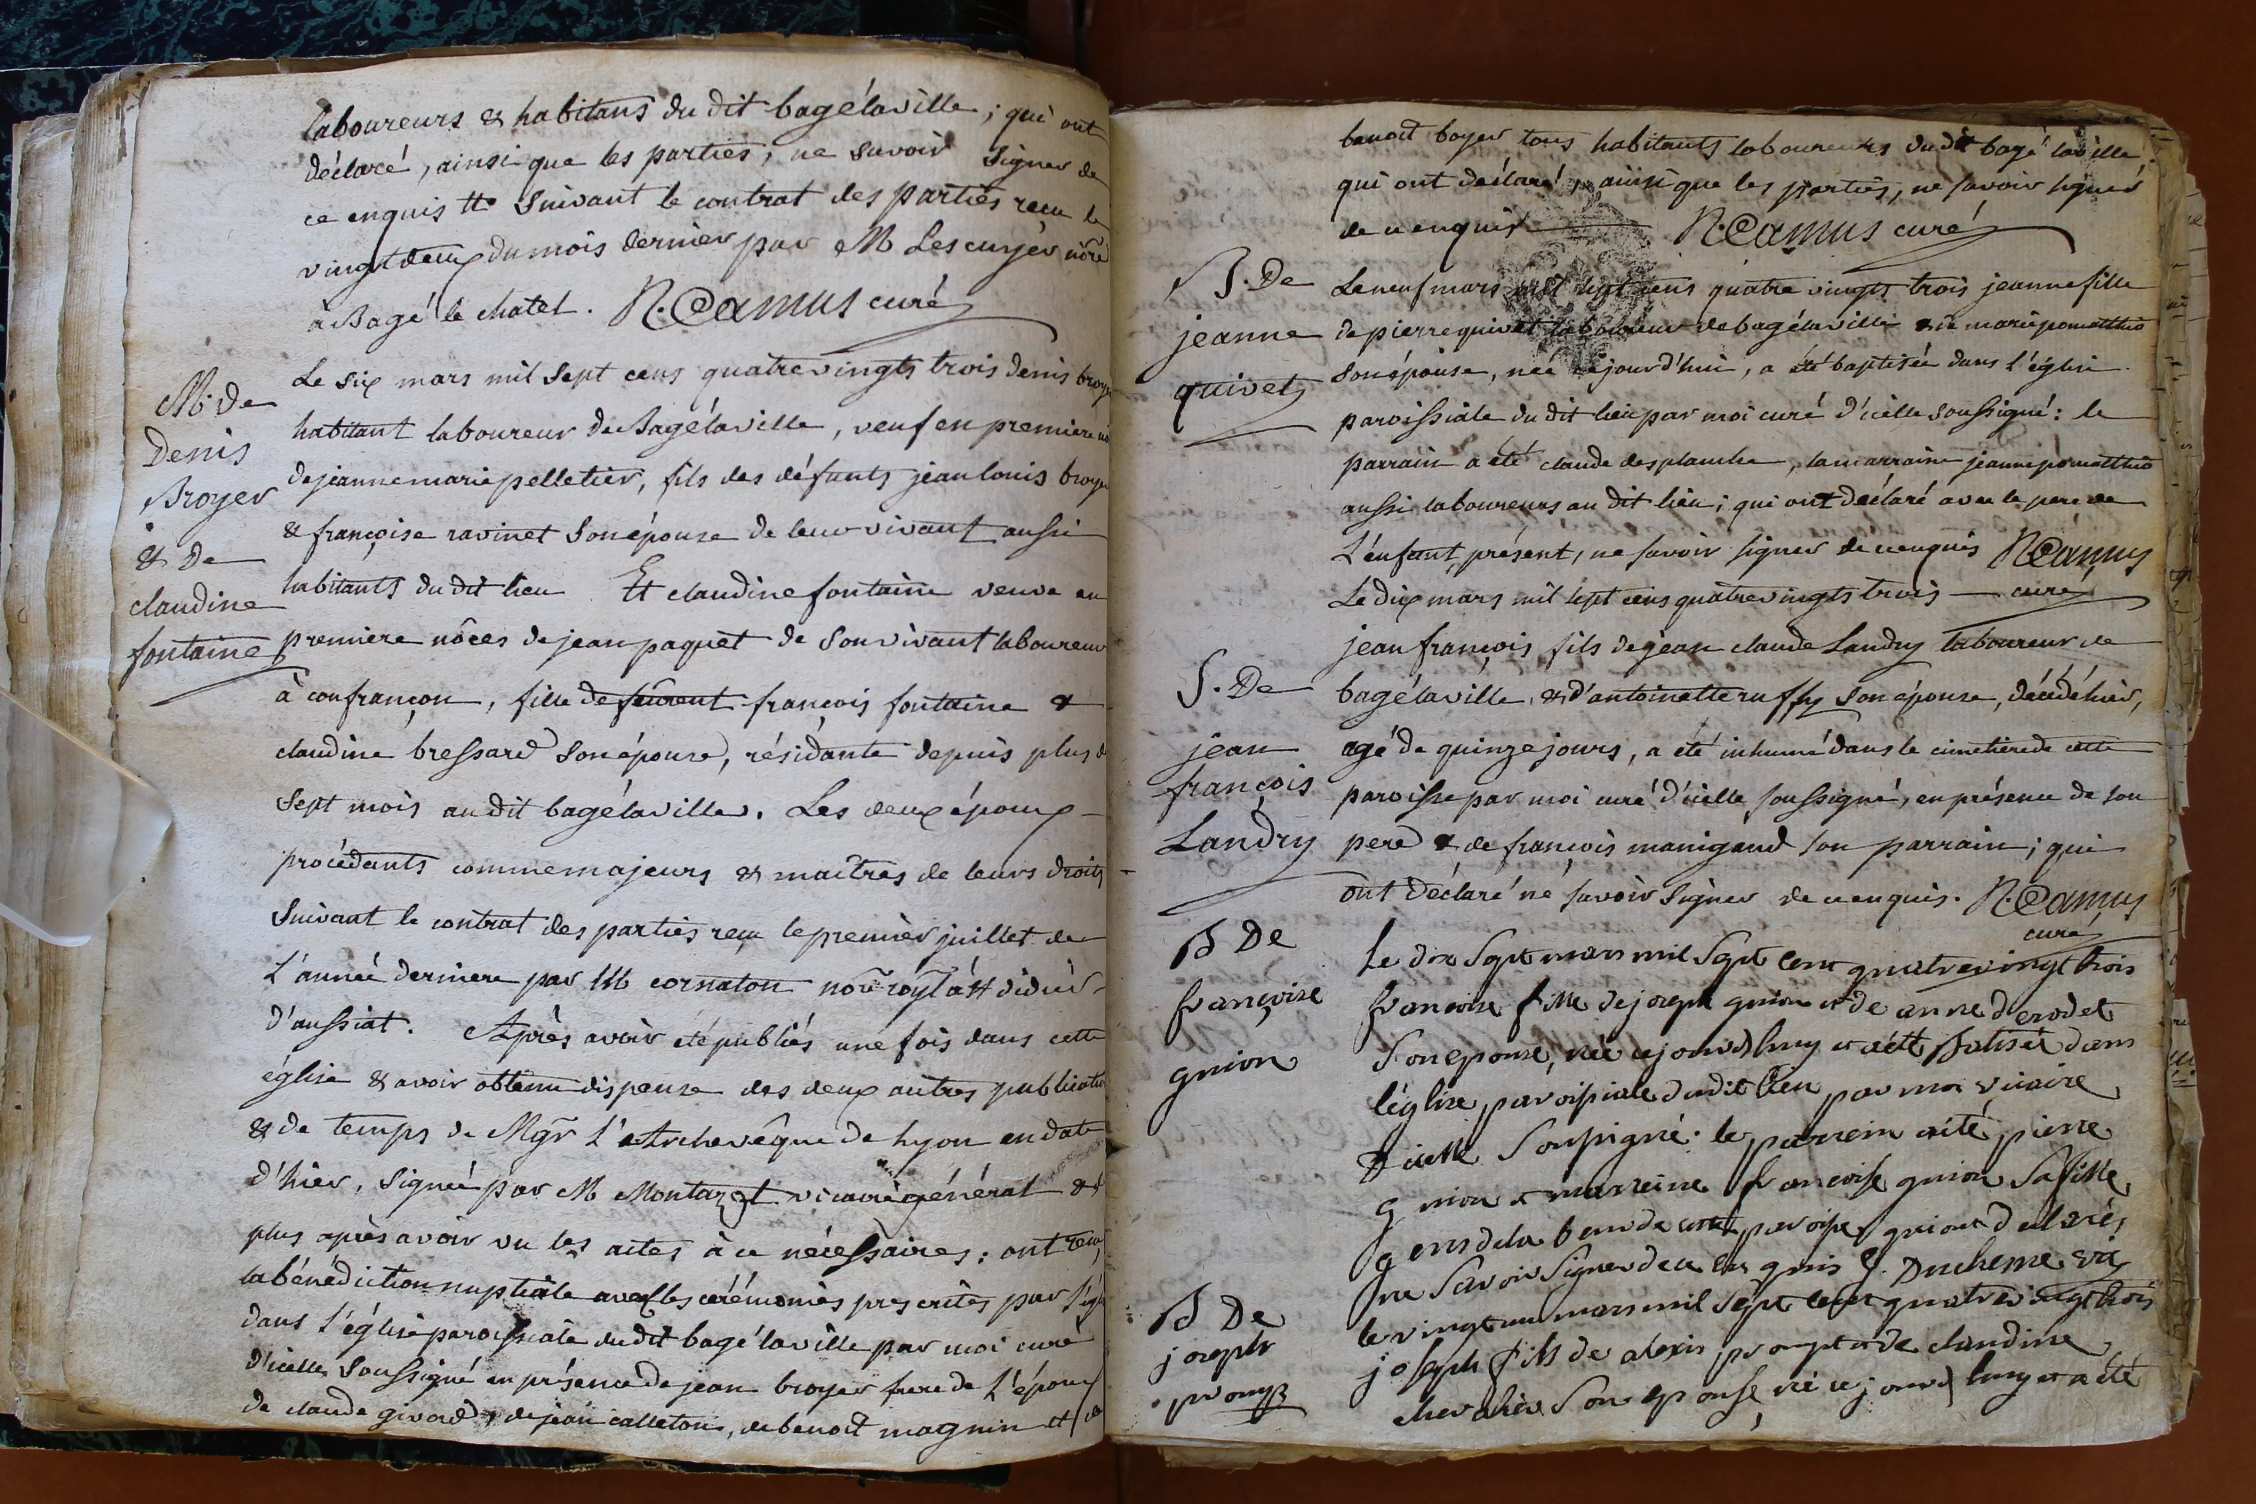 laboureurs & habitans du dit bagélaville ; qui ont
déclaré, ainsi que les parties, ne savoir signer de
ce enquis tt. Suivant le contrat des parties recu le
vingtdeux du mois dernier par M Lescuyer nōre
à Bagé le chatel. N. Camus curé
M. de
Denis
Broyer
& De
claudine
fontaine
Le six mars mil Sept cens quatrevingts trois denis broyer
habitant laboureur de Bagélaville, veuf en premiere
de jeanne marie pelletier, fils des défunts jean louis broyer
& françoise ravinet son épouse de leur vivant aussi
habitants du dit lieu Et claudine fontaine veuve en
premiere nôces de jean paquet de Son vivant laboureur
à confrançon, fille de françois fontaine &
claudine bressard son épouse, résidante depuis plus de
Sept mois au dit bagélaville. Les deux époux
procédants comme majeurs & maîtres de leurs droits
Suivant le contrat des parties reçu le premier juillet de
L'année derniere par M cornaton nōre royl à St didier
d'aussiat. Après avoir été publiés une fois dans cette
église & avoir obtenu dispense des deux autres publications
& de temps de Mgr L'Archevêque de Lyon en date
d'hier, Signée par M Montazet vicaire général &
plus après avoir vu les actes à ce nécessaires ; ont reçu
la bénédiction nuptiale avec les cérémonies prescrites par l'église
dans l'église paroissiale du dit bagélaville par moi curé
d'icelle Soussigné en présence de jean broyer frere de L'époux
de claude girard, de jean calleton, de benoit magnin et de
benoit boyer tous habitants laboureurs du dit bagé laville
qui ont déclaré, ainsi que les parties, ne savoir signer
de ce enquis N. Camus curé
B. De
jeanne
quivet
Le neuf mars mil sept cens quatre vingts trois jeanne fille
de pierre quivet laboureur de bagélaville & de marie pomatthio
son épouse, née cejourd'hui, a été baptisée dans l'église
paroissiale du dit lieu par moi curé d'icelle soussigné : le
parrain a été claude desplanche, la marraine jeanne pomatthio
aussi laboureurs au dit lieu ; qui ont déclaré avec le pere de
L'enfant présent, ne savoir signer de ce enquis N. Camus
curé
S. De
jean
françois
Landry
Le dix mars mil sept cens quatrevingts trois
jean françois fils de jean claude Landry laboureur de
bagélaville, & d'antoinette ruffy son épouse, décédé hier,
agé de quinze jours, a été inhumé dans le cimetiere de cette
paroisse par moi curé d'icelle soussigné, en présence de son
pere & de françois manigand son parrain ; qui
ont déclaré ne savoir signer de ce enquis. N. Camus
curé
B De
françoise
guion
Le dix Sept mars mil Sept cent quatrevingt trois
francoise fille de joseph guion et de anne derodet
Son epouse, née cejourdhuy et a été Batisée dans
léglise paroissiale dudit lieu par moi vicaire
dicelle Soussigné. le parrein a été pierre
guion & marreine francoise guion Sa fille
gens de la bande cette paroisse qui ont déclarés
ne Savoir Signer de ce en quis J. Duchesne vic
B De
joseph
prompt
le vingt un mars mil sept cent quatrevingt trois
joseph fils de alexis prompt et de claudine
chevalier Son epouse né cejourdhuy et a été